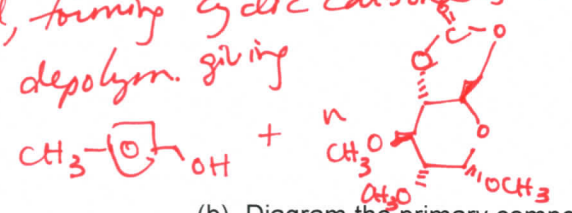 , forming cyclic
depolym. giving
CH3 OH + n
O
C O
O
O
CH3O
CH3O OCH3
(b) Diagram the primary